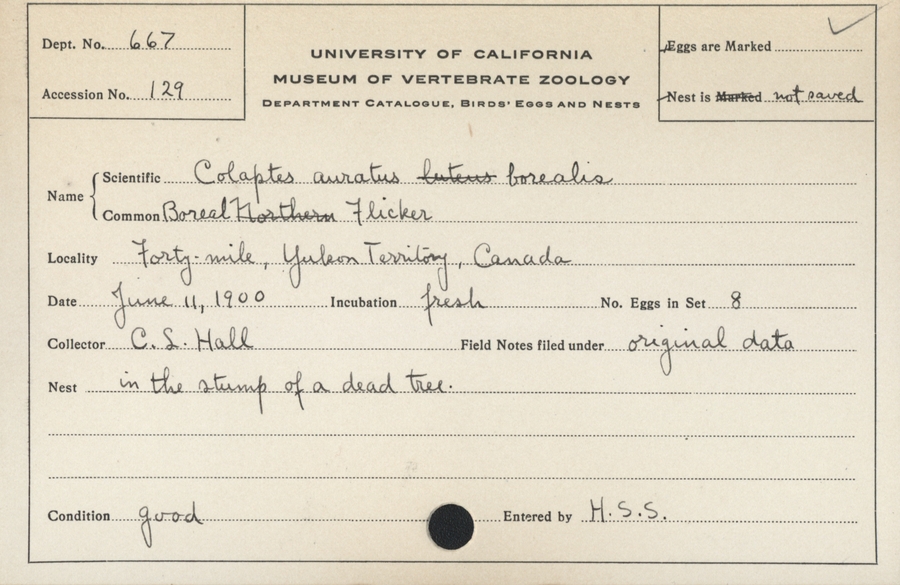 Dept. No. 667
Accession No. 129
UNIVERSITY OF CALIFORNIA
MUSEUM OF VERTEBRATE ZOOLOGY
DEPARTMENT CATALOGUE, BIRDS' EGGS AND NESTS
Eggs are Marked
Nest is Marked not saved
Name
Scientific Colaptes auratus luteus borealis
Common Boreal Northern Flicker
Locality Forty-mile, Yukon Territory, Canada
Date June 11, 1900 Incubation fresh No. Eggs in Set 8
Collector C. L. Hall Field Notes filed under original data
Nest in the stump of a dead tree.
Condition good Entered by H.S.S.